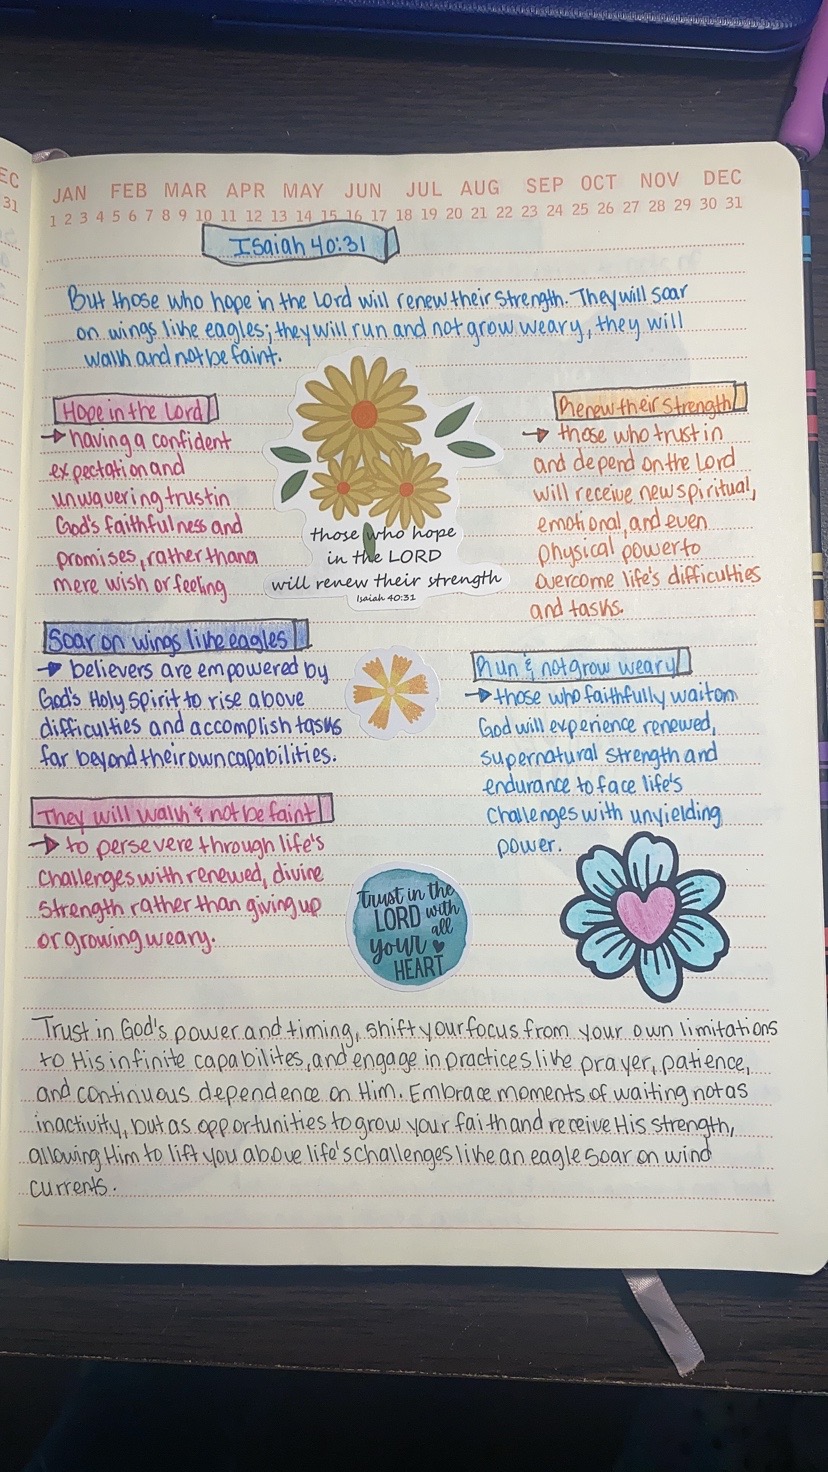 EC
31
JAN FEB MAR APR MAY JUN JUL AUG SEP OCT NOV DEC
1 2 3 4 5 6 7 8 9 10 11 12 13 14 15 16 17 18 19 20 21 22 23 24 25 26 27 28 29 30 31
Isaiah 40:31
But those who hope in the Lord will renew their strength. They will soar
on wings like eagles; they will run and not grow weary, they will
walk and not be faint.
Hope in the Lord
→ having a confident
expectation and
unwavering trust in
God's faithfulness and
promises, rather than a
mere wish or feeling
those who hope
in the LORD
will renew their strength
Isaiah 40:31
Renew their strength
→ those who trust in
and depend on the Lord
will receive new spiritual,
emotional, and even
physical power to
overcome life's difficulties
and tasks.
Soar on wings like eagles
→ believers are empowered by
God's Holy Spirit to rise above
difficulties and accomplish tasks
far beyond their own capabilities.
Run & not grow weary
→ those who faithfully wait on
God will experience renewed,
supernatural strength and
endurance to face life's
challenges with unyielding
power.
They will walk & not be faint
→ to persevere through life's
challenges with renewed, divine
strength rather than giving up
or growing weary.
Trust in the
LORD with
all
your
HEART
Trust in God's power and timing, shift your focus from your own limitations
to His infinite capabilites, and engage in practices like prayer, patience,
and continuous dependence on Him. Embrace moments of waiting not as
inactivity, but as opportunities to grow your faith and receive His strength,
allowing Him to lift you above life's challenges like an eagle soar on wind
currents.